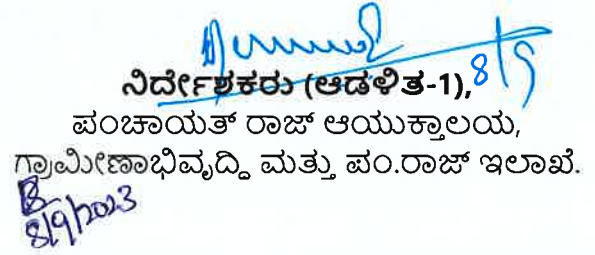 8/9
ನಿರ್ದೇಶಕರು (ಆಡಳಿತ-1),
ಪಂಚಾಯತ್ ರಾಜ್ ಆಯುಕ್ತಾಲಯ,
ಗ್ರಾಮೀಣಾಭಿವೃದ್ಧಿ ಮತ್ತು ಪಂ.ರಾಜ್ ಇಲಾಖೆ.
8/9/2023